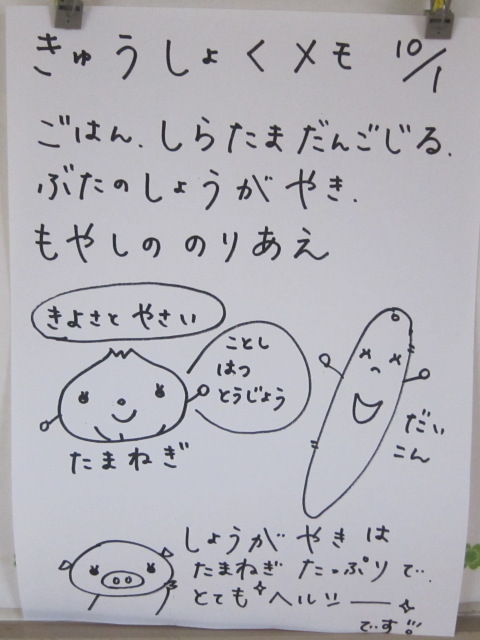 きゅうしょくメモ 10/1
ごはん.しらたまだんごじる.
ぶたのしょうがやき.
もやしののりあえ
きよさと やさい
ことし
はつ
とうじょう
たまねぎ
だい
こん
しょうが やき は
たまねぎ たっぷりで..
とても ヘルシー
です!!!